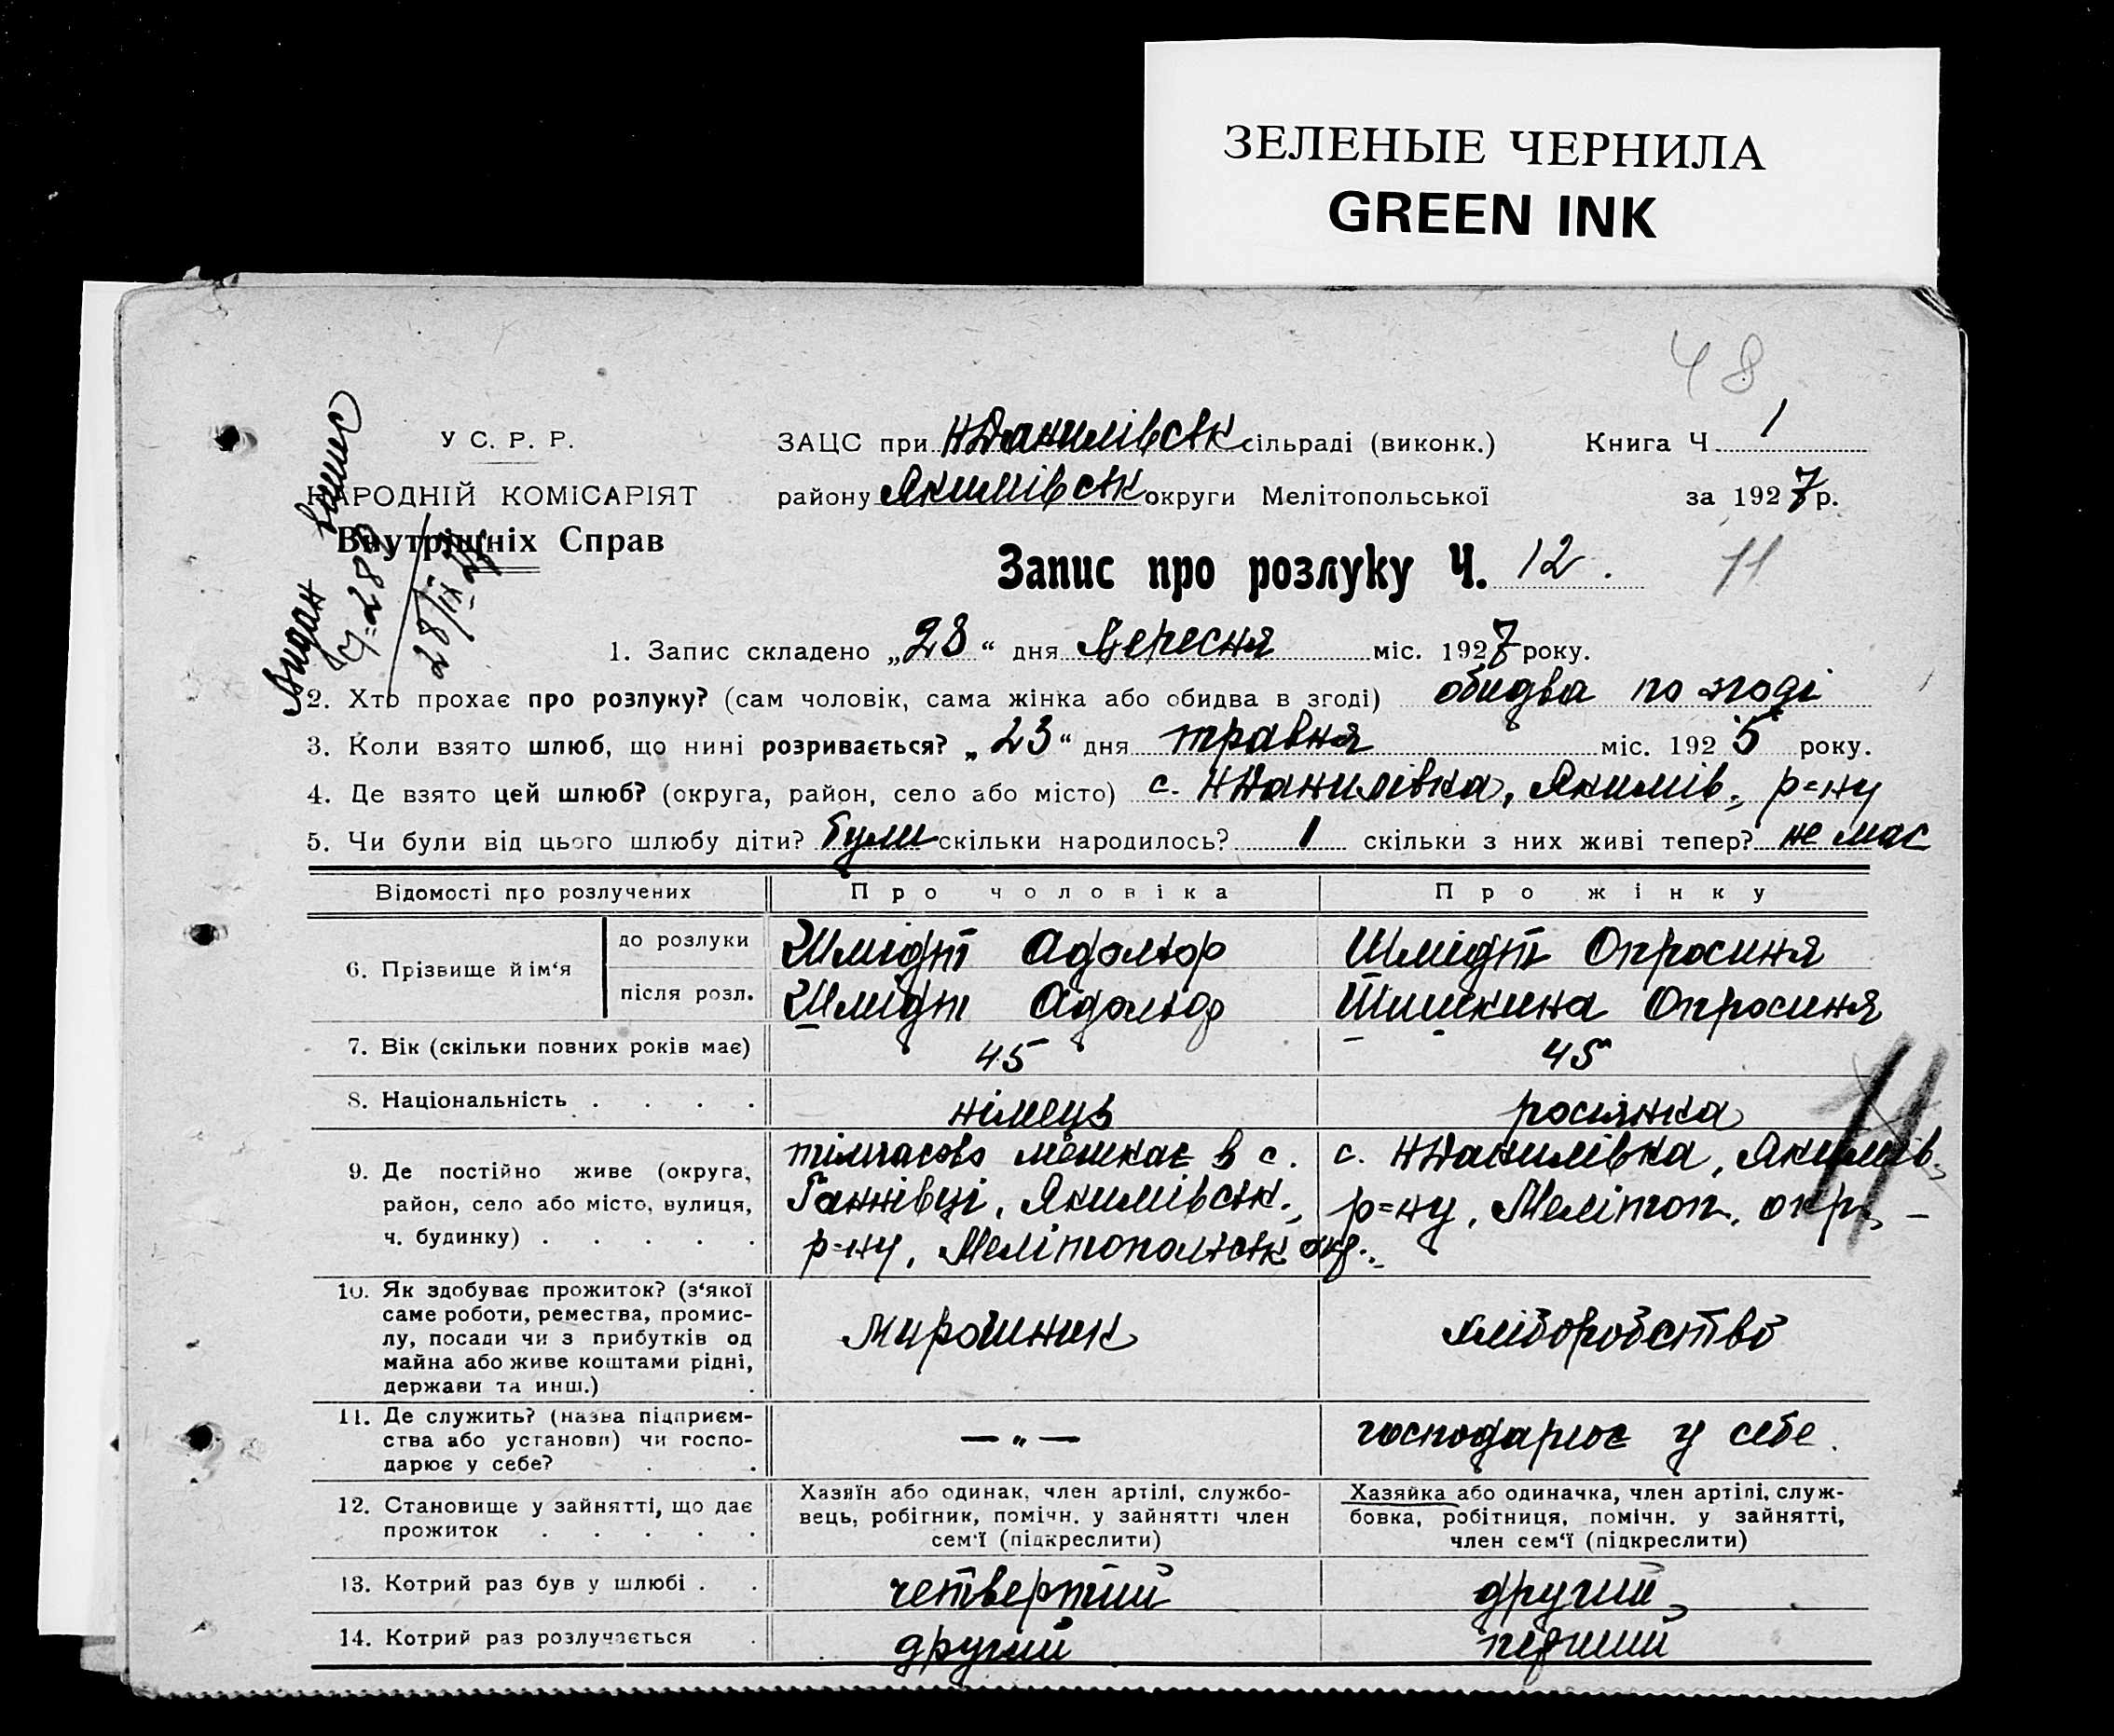 ЗЕЛЕНЫЕ ЧЕРНИЛА
GREEN INK
48
У С. Р. Р.
НАРОДНІЙ КОМІСАРІЯТ
Внутрішніх Справ
Видан випис
28/IX 27
ЗАЦС при НДанилівськ сільраді (виконк.) Книга Ч. 1
району Якимівськ округи Мелітопольської за 1927 р.
Запис про розлуку Ч. 12. 11
1. Запис складено „28“ дня Вересня міс. 1927 року.
2. Хто прохає про розлуку? (сам чоловік, сама жінка або обидва в згоді) обидва по згоді
3. Коли взято шлюб, що нині розривається? „23“ дня травня міс. 1925 року.
4. Де взято цей шлюб? (округа, район, село або місто) с. НДанилівка, Якимів., р=ну
5. Чи були від цього шлюбу діти? були скільки народилось? 1 скільки з них живі тепер? не має
Відомості про розлучених Про чоловіка Про жінку
6. Прізвище й ім‘я
до розлуки Шмідт Адольф Шмідт Опросиня
після розл. Шмідт Адольф Шишкина Опросиня
7. Вік (скільки повних років має) 45 45
8. Національність . . . . німець росіянка
9. Де постійно живе (округа, район, село або місто, вулиця, ч. будинку) . . . . .
тімчасово мешкає в с.
Ганнівці, Якимівськ.,
р=ну, Мелітопольськ окр.
с. НДанилівка, Якимів.
р=ну, Мелітоп. окр. –
11
10. Як здобуває прожиток? (з‘якої
саме роботи, ремества, промис-
лу, посади чи з прибутків од
майна або живе коштами рідні,
держави та инш.) .
мирошник хліборобство
11. Де служить? (назва підприєм-
ства або установи) чи госпо-
дарює у себе? . .
— „ — господарює у себе.
12. Становище у зайнятті, що дає
прожиток . . . . .
Хазяїн або одинак, член артілі, службо-
вець, робітник, помічн. у зайнятті член
сем‘ї (підкреслити)
Хазяйка або одиначка, член артілі, служ-
бовка, робітниця, помічн. у зайнятті,
член сем‘ї (підкреслити)
13. Котрий раз був у шлюбі . . четвертий другий
14. Котрий раз розлучається . другий перший